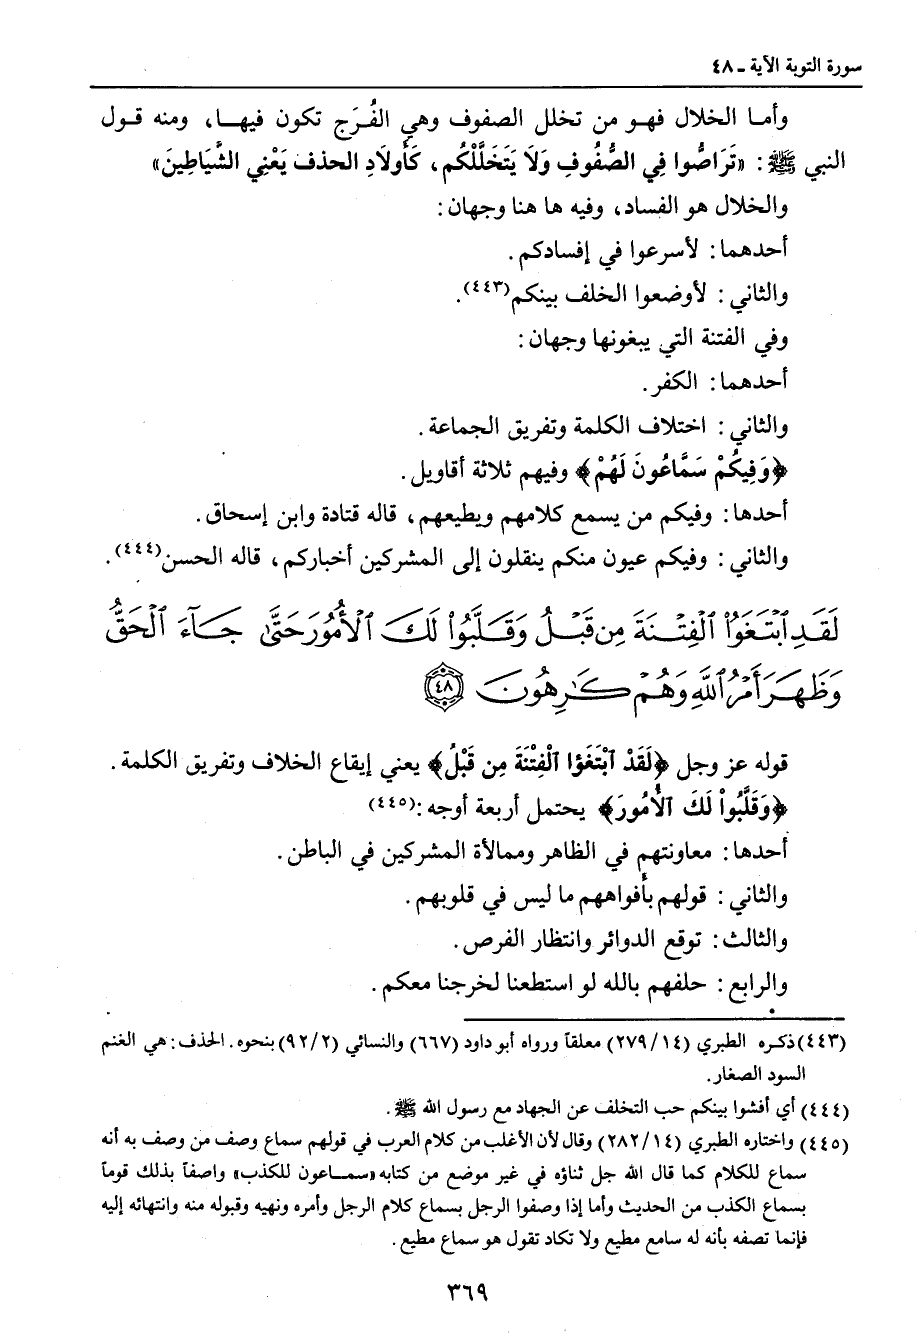 سورة التوبة الآية ـ ٤٨
وأما الخلال فهو من تخلل الصفوف وهي الفُرَج تكون فيها، ومنه قول
النبي ﷺ: «تَرَاصُّوا فِي الصُّفُوفِ وَلاَ يَتَخَلَّلْكُم، كَأَولاَدِ الحذف يَعْنِي الشَّيَاطِينَ»
والخلال هو الفساد، وفيه ها هنا وجهان:
أحدهما: لأسرعوا في إفسادكم.
والثاني: لأوضعوا الخلف بينكم(٤٤٣).
وفي الفتنة التي يبغونها وجهان:
أحدهما: الكفر.
والثاني: اختلاف الكلمة وتفريق الجماعة.
﴿وَفِيكُمْ سَمَّاعُونَ لَهُمْ﴾ وفيهم ثلاثة أقاويل.
أحدها: وفيكم من يسمع كلامهم ويطيعهم، قاله قتادة وابن إسحاق.
والثاني: وفيكم عيون منكم ينقلون إلى المشركين أخباركم، قاله الحسن(٤٤٤).
لَقَدِ ٱبْتَغَوُا۟ ٱلْفِتْنَةَ مِن قَبْلُ وَقَلَّبُوا۟ لَكَ ٱلْأُمُورَ حَتَّىٰ جَآءَ ٱلْحَقُّ
وَظَهَرَ أَمْرُ ٱللَّهِ وَهُمْ كَٰرِهُونَ ٤٨
قوله عز وجل ﴿لَقَدْ ٱبْتَغَوُا ٱلْفِتْنَةَ مِن قَبْلُ﴾ يعني إيقاع الخلاف وتفريق الكلمة.
﴿وَقَلَّبُواْ لَكَ ٱلأُمُورَ﴾ يحتمل أربعة أوجه:(٤٤٥)
أحدها: معاونتهم في الظاهر وممالأة المشركين في الباطن.
والثاني: قولهم بأفواههم ما ليس في قلوبهم.
والثالث: توقع الدوائر وانتظار الفرص.
والرابع: حلفهم بالله لو استطعنا لخرجنا معكم.
(٤٤٣) ذكره الطبري (٢٧٩/١٤) معلقاً ورواه أبو داود (٦٦٧) والنسائي (٩٢/٢) بنحوه. الحذف: هي الغنم
السود الصغار.
(٤٤٤) أي أفشوا بينكم حب التخلف عن الجهاد مع رسول الله ﷺ.
(٤٤٥) واختاره الطبري (٢٨٢/١٤) وقال لأن الأغلب من كلام العرب في قولهم سماع وصف من وصف به أنه
سماع للكلام كما قال الله جل ثناؤه في غير موضع من كتابه «سماعون للكذب» واصفاً بذلك قوماً
بسماع الكذب من الحديث وأما إذا وصفوا الرجل بسماع كلام الرجل وأمره ونهيه وقبوله منه وانتهائه إليه
فإنما تصفه بأنه له سامع مطيع ولا تكاد تقول هو سماع مطيع.
٣٦٩